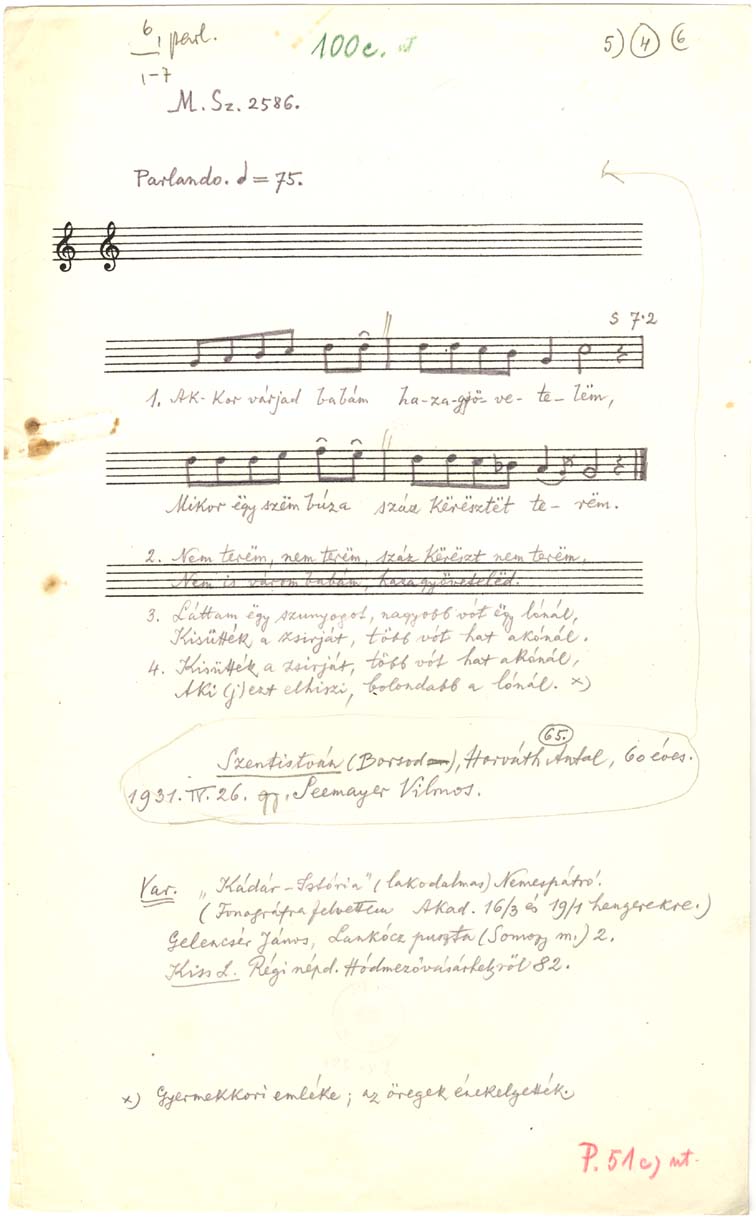 6, parl.
1-7
100c.
5) 4 6
M. Sz. 2586.
Parlando. = 75.
S 7·2
1. Ak-kor várjad babám ha-za-gyö-ve-te-lëm,
Mikor ëgy szëm búza száz kërësztët te-rëm.
2. Nem terëm, nem terëm, száz kërëszt nem terëm,
Nem is várom babám, hazagyöveteled.
3. Láttam ëgy szunyogot, nagyobb vót ëgy lónál,
Kisütték a zsirját, több vót hat akónál.
4. Kisütték a zsirját, több vót hat akónál,
Aki (j) ezt elhiszi, bolondabb a lónál. x)
65.
Szentistván (Borsod), Horváth Antal, 60 éves.
1931. IV. 26. gy. Seemayer Vilmos.
Var. „Kádár-Istória" (lakodalmas) Nemespátró.
(Fonográfra felvettem Akad. 16/3 és 19/1 hengerekre.)
Gelencsér János, Lankócz puszta (Somogy m.) 2.
Kiss L. Régi népd. Hódmezővásárhelyről 82.
x) Gyermekkori emléke; az öregek énekelgették.
P. 51c) nt.